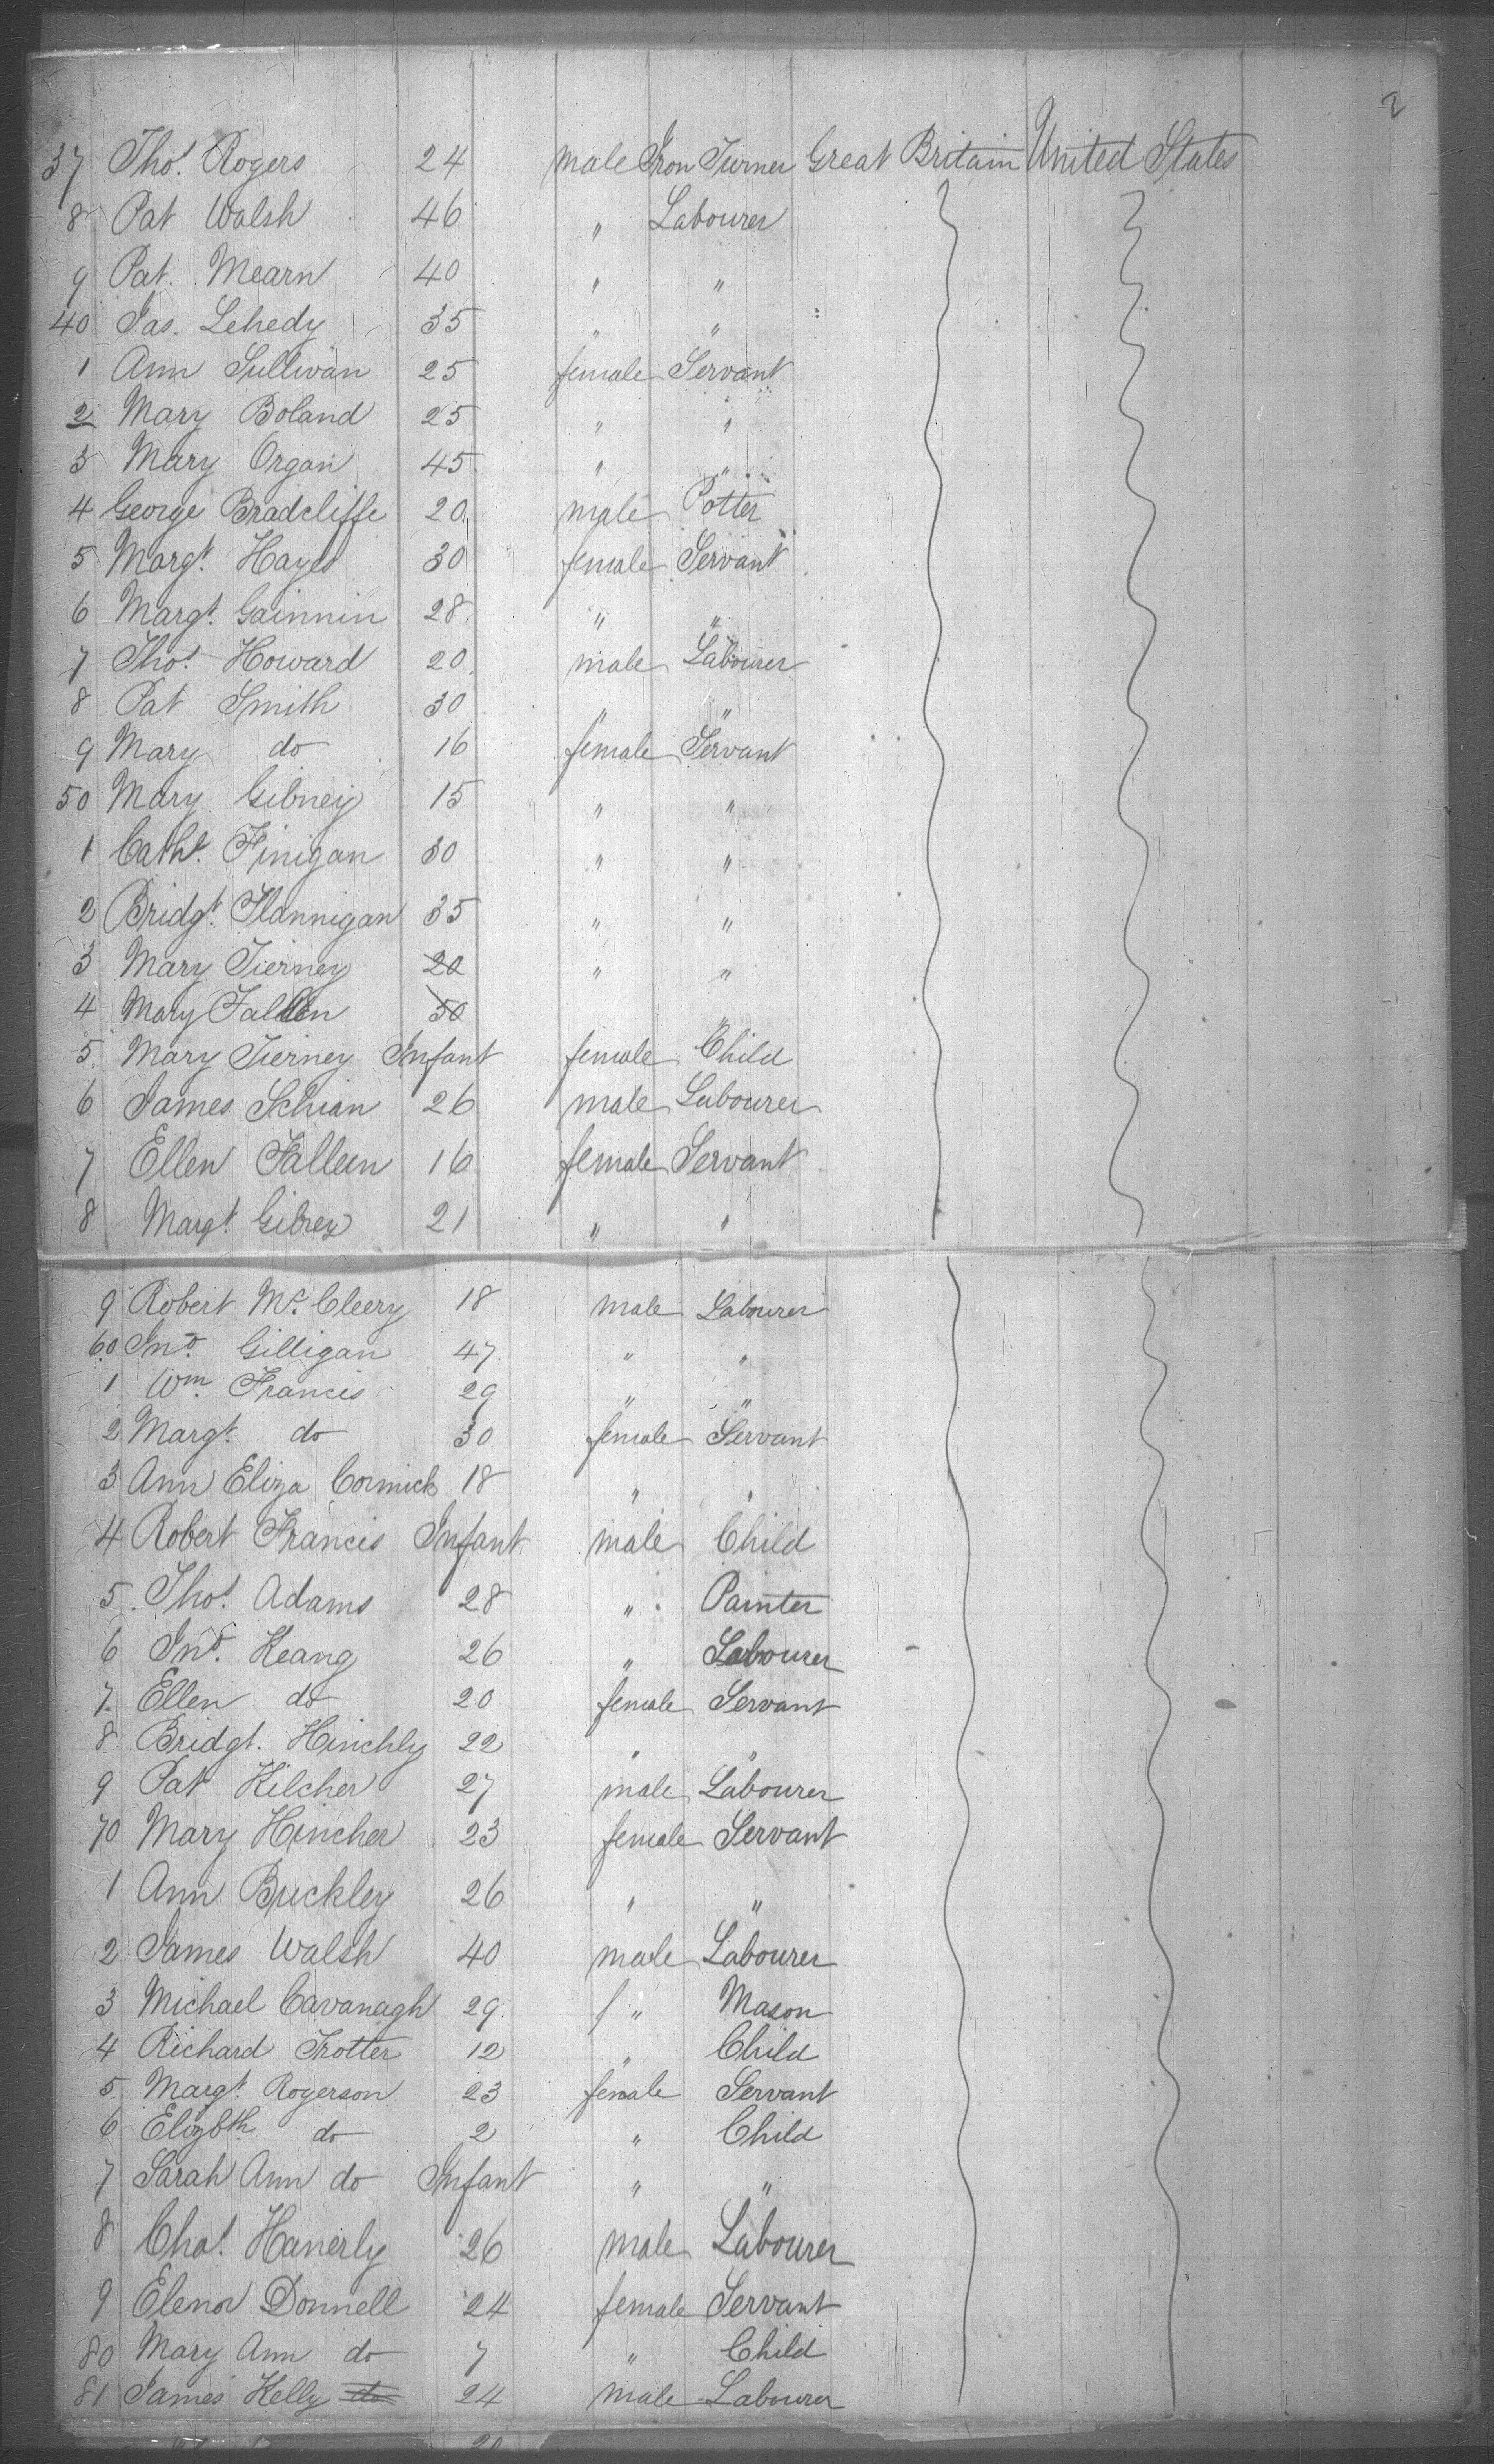 2
37 Thos. Rogers 24 male Iron Turner Great Britain United States
8 Pat Walsh 46 " Labourer
9 Pat. Mearn 40 " "
40 Jas. Lehedy 35 " "
1 Ann Sullivan 25 female Servant
2 Mary Boland 25 " "
3 Mary Organ 45 " "
4 George Bradcliffe 20 male Potter
5 Margt. Hayes 30 female Servant
6 Margt. Gainnin 28 " "
7 Thos. Howard 20 male Labourer
8 Pat Smith 30 " "
9 Mary do 16 female Servant
50 Mary Gibney 15 " "
1 Cathe. Finigan 30 " "
2 Bridgt. Flannigan 35 " "
3 Mary Tierney 20 " "
4 Mary Fallen 50 "
5 Mary Tierney Infant female Child
6 James Schian 26 male Labourer
7 Ellen Falleen 16 female Servant
8 Margt. Gibney 21 " "
9 Robert Mc. Cleery 18 male Labourer
60 Jno. Gilligan 47 " "
1 Wm. Francis 29 " "
2 Margt. do 30 female Servant
3 Ann Eliza Cormick 18 " "
4 Robert Francis Infant male Child
5 Thos. Adams 28 " Painter
6 Jno. Keang 26 " Labourer
7 Ellen do 20 female Servant
8 Bridgt. Hinchly 22 " "
9 Pat Kilcher 27 male Labourer
70 Mary Hincher 23 female Servant
1 Ann Buckley 26 " "
2 James Walsh 40 male Labourer
3 Michael Cavanagh 29 " Mason
4 Richard Trotter 12 " Child
5 Margt. Rogerson 23 female Servant
6 Elizbth. do 2 " Child
7 Sarah Ann do Infant " "
8 Chas. Hanerly 26 male Labourer
9 Elenor Donnell 24 female Servant
80 Mary Ann do 7 " Child
81 James Kelly do 24 male Labourer